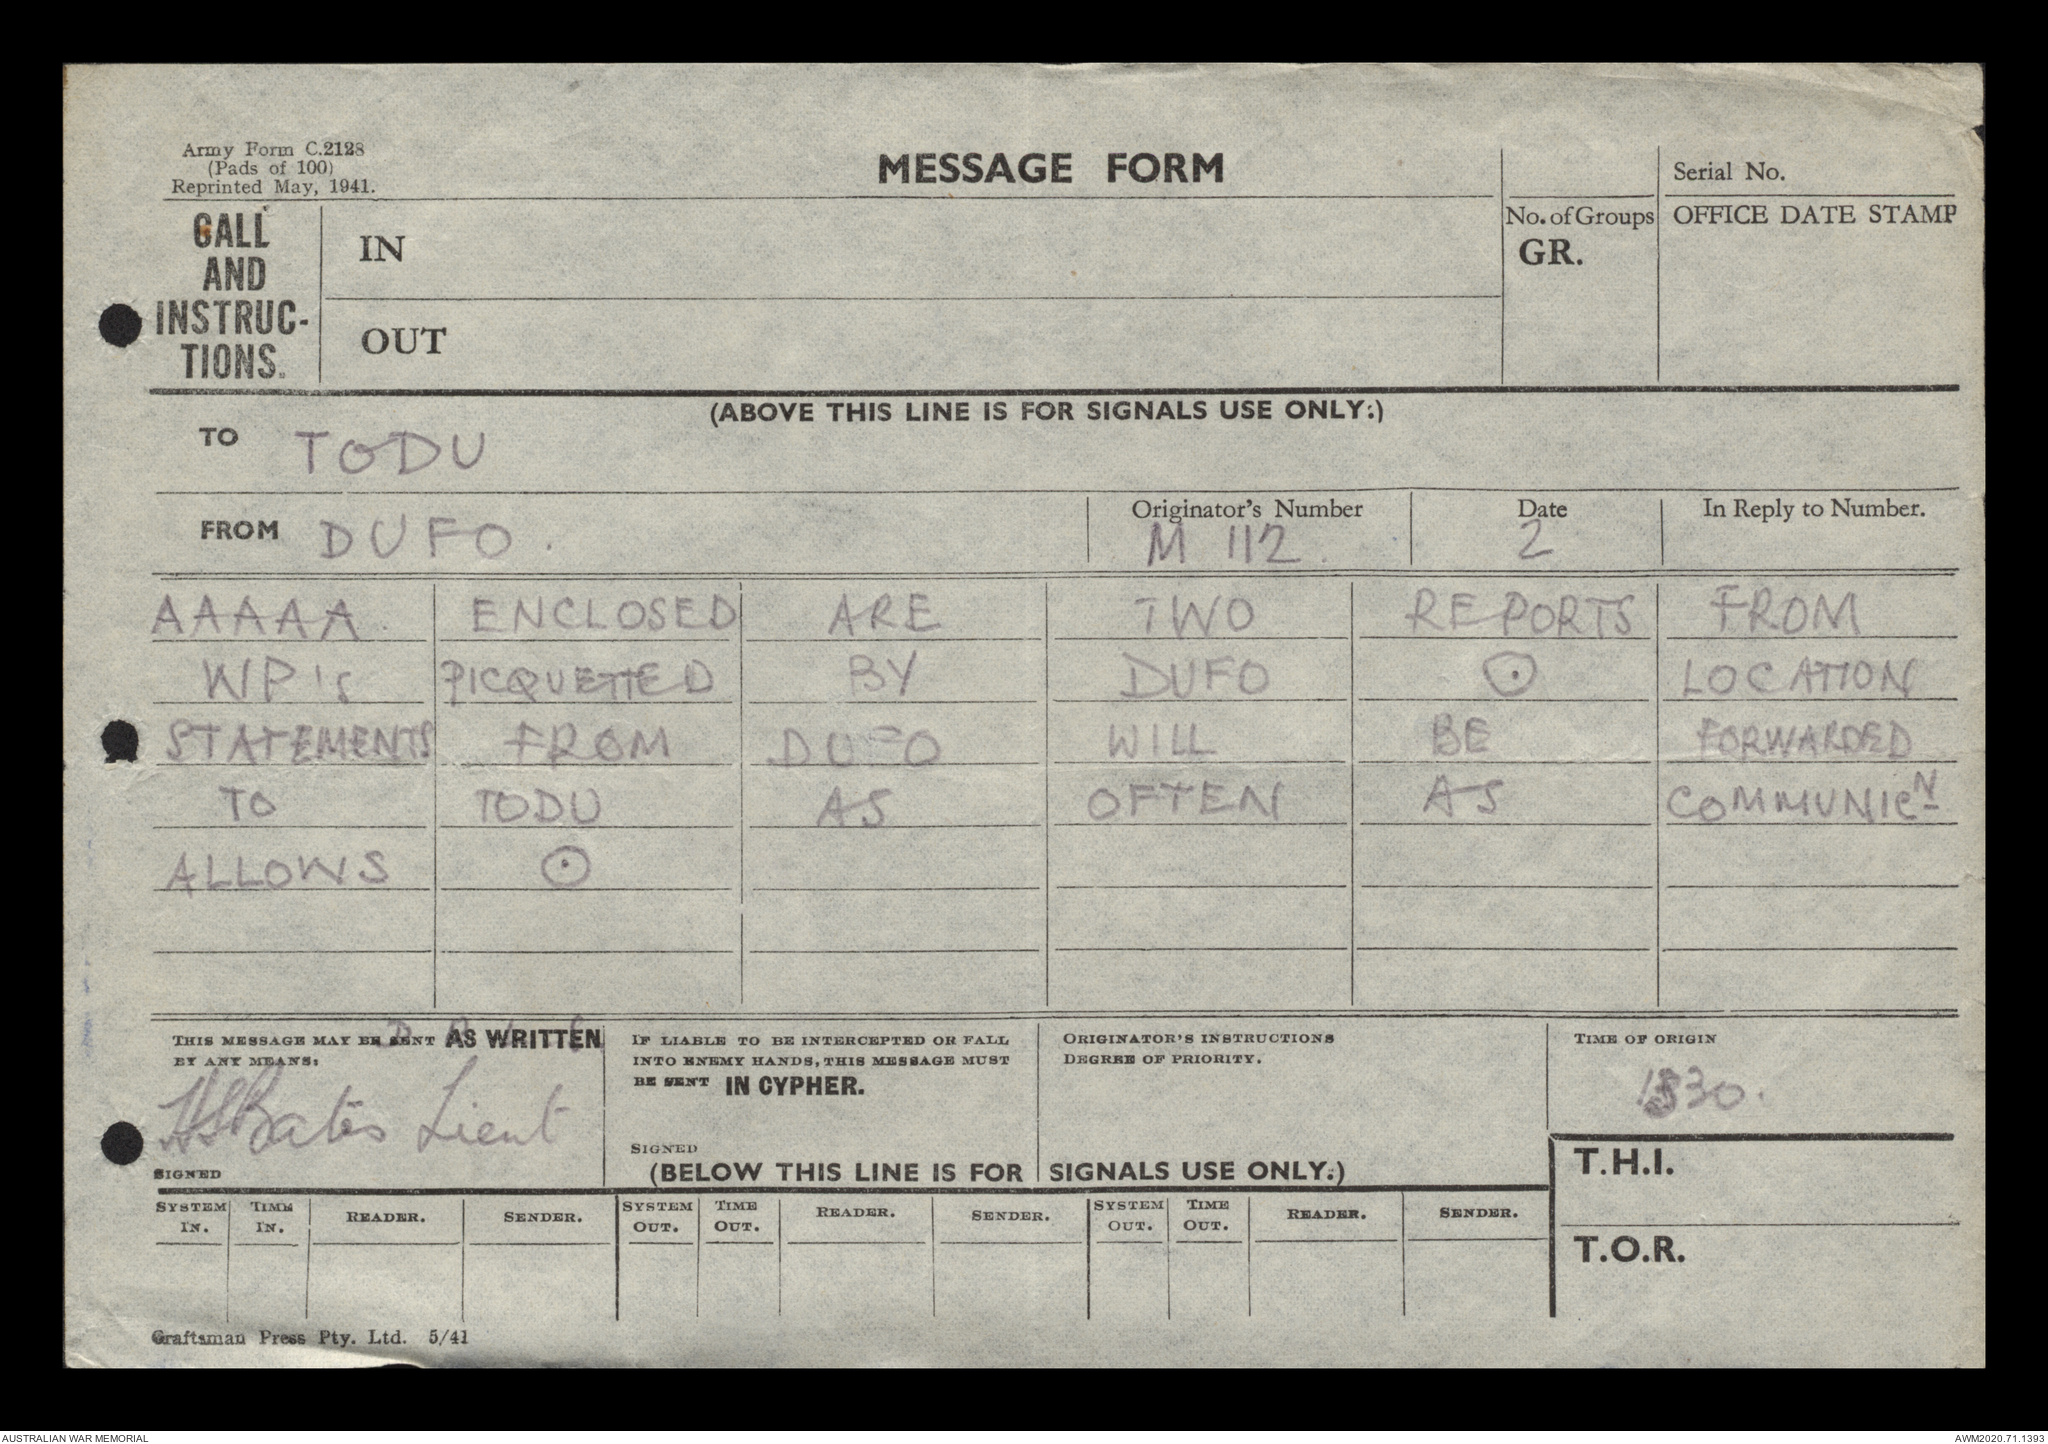 Army Form C.2128
(Pads of 100)
Reprinted May, 1941.
MESSAGE FORM
Serial No.
CALL AND INSTRUC- TIONS.
IN
No. of Groups GR.
OFFICE DATE STAMP
OUT
(ABOVE THIS LINE IS FOR SIGNALS USE ONLY.)
TO TODU
FROM DUFO.
Originator's Number M 112.
Date 2
In Reply to Number.
AAAAA ENCLOSED ARE TWO REPORTS FROM
WP's PICQUETTED BY DUFO ⊙ LOCATION
STATEMENTS FROM DUFO WILL BE FORWARDED
TO TODU AS OFTEN AS COMMUNICN
ALLOWS ⊙
THIS MESSAGE MAY BE SENT AS WRITTEN
BY ANY MEANS:
Bates Lieut
SIGNED
IF LIABLE TO BE INTERCEPTED OR FALL
INTO ENEMY HANDS, THIS MESSAGE MUST
BE SENT IN CYPHER.
SIGNED
ORIGINATOR'S INSTRUCTIONS
DEGREE OF PRIORITY.
TIME OF ORIGIN
(BELOW THIS LINE IS FOR SIGNALS USE ONLY.)
T.H.I.
SYSTEM IN. TIME IN. READER. SENDER. SYSTEM OUT. TIME OUT. READER. SENDER. SYSTEM OUT. TIME OUT. READER. SENDER.
T.O.R.
Craftsman Press Pty. Ltd. 5/41
AUSTRALIAN WAR MEMORIAL
AWM2020.71.1393